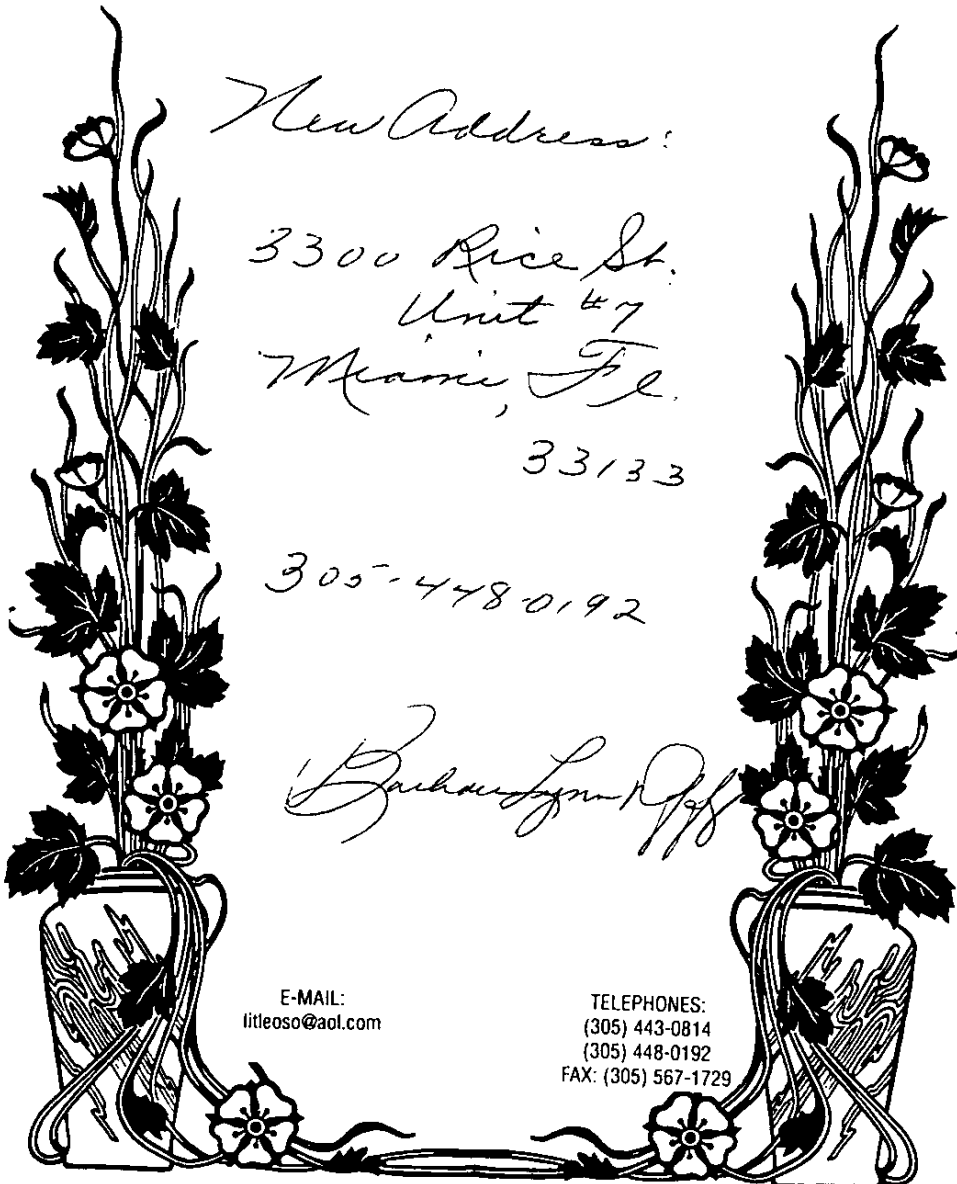 New Address:
3300 Rice St.
Unit #7
Miami, Fl.
33133
305-448-0192
Barbara Lynn
E-MAIL:
litleoso@aol.com
TELEPHONES:
(305) 443-0814
(305) 448-0192
FAX: (305) 567-1729